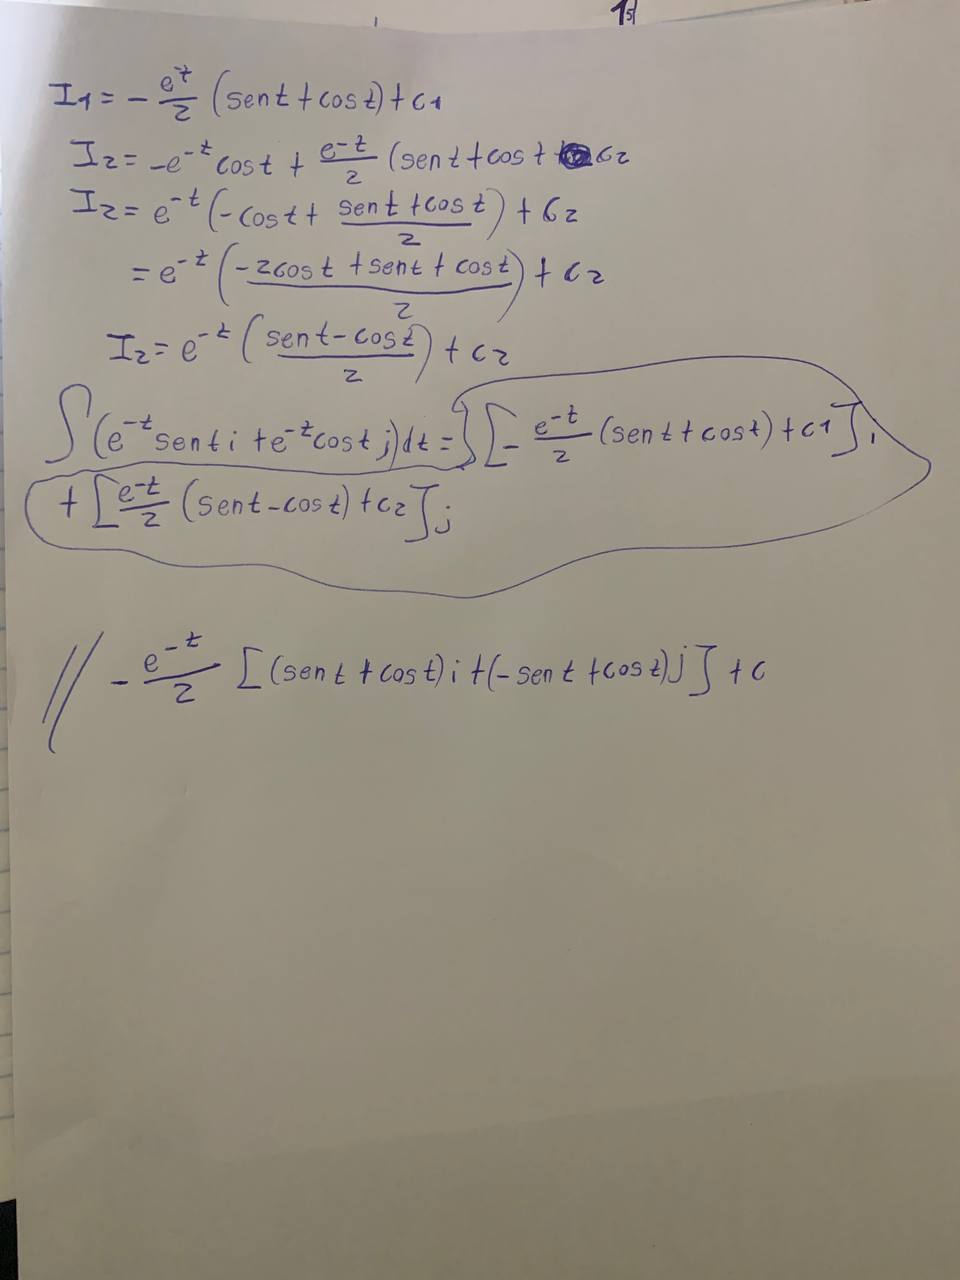 1
I1 = - e^t/2 (sent + cost) + c1
I2 = -e^-t cost + e^-t/2 (sent + cost + c2
I2 = e^-t (-cost + sent + cost/2) + c2
= e^-t (-2cost + sent + cost/2) + c2
I2 = e^-t (sent - cost/2) + c2
∫(e^-t sent i + e^-t cost j)dt = } [- e^-t/2 (sent + cost) + c1]i
+ [e^-t/2 (sent - cost) + c2]j
// - e^-t/2 [(sent + cost)i + (-sent + cost)j] + c